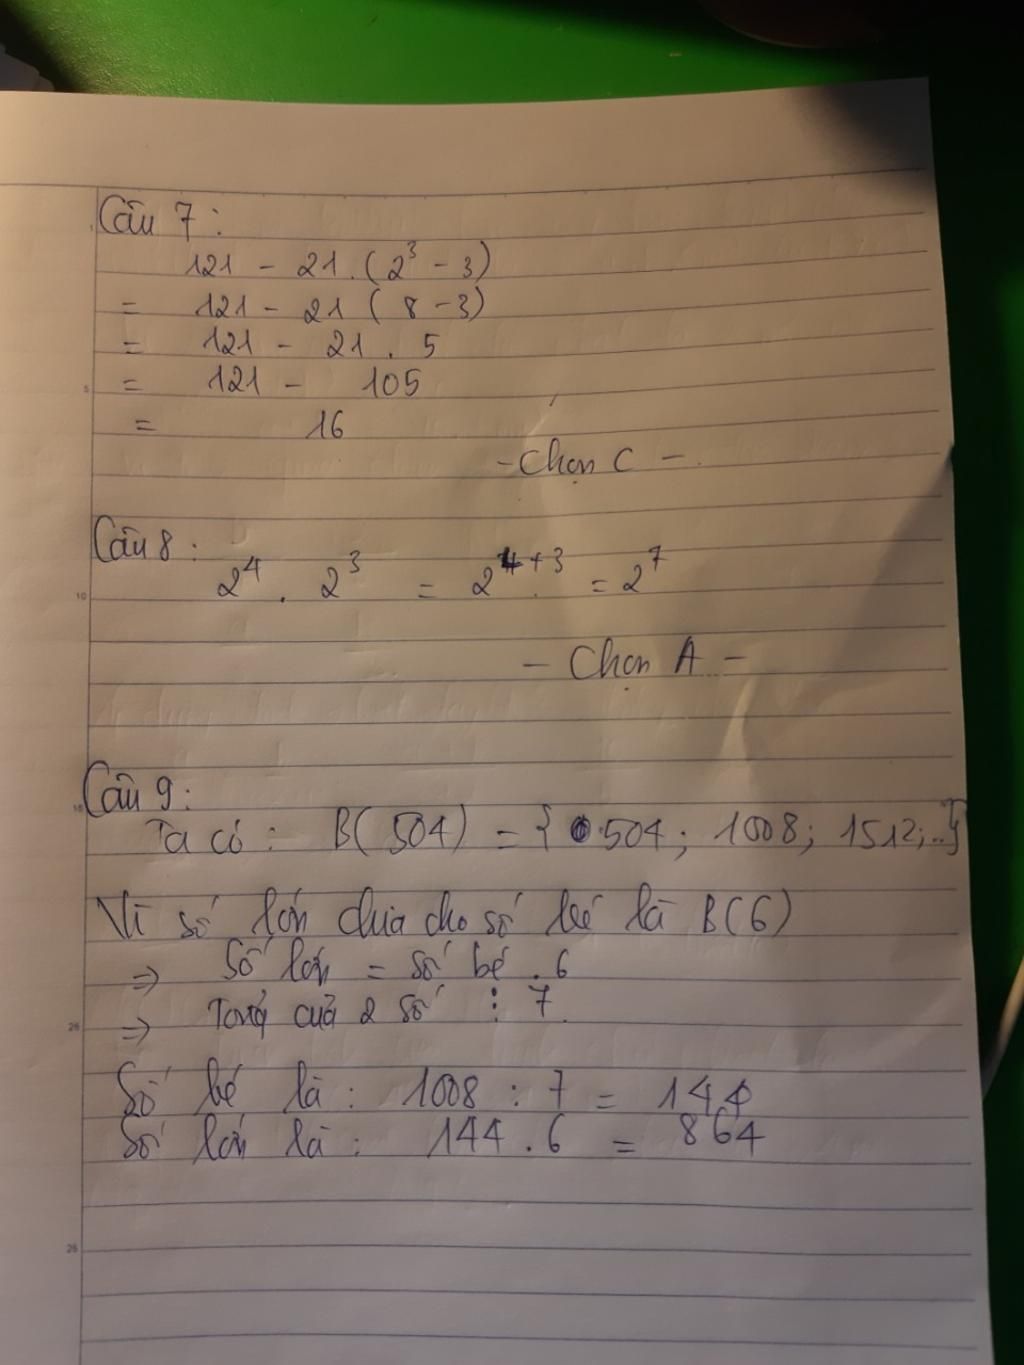 Câu 7:
121 - 21.(2³ - 3)
= 121 - 21 (8 - 3)
= 121 - 21 . 5
= 121 - 105
= 16
- Chọn C -
Câu 8:
2⁴ . 2³ = 2⁴⁺³ = 2⁷
- Chọn A -
Câu 9:
Ta có: B(504) = { 504; 1008; 1512;..}
Vì số lớn chia cho số bé là B(6)
=> Số lớn = số bé . 6
=> Tổng của 2 số ⋮ 7
Số bé là: 1008 : 7 = 144
Số lớn là: 144 . 6 = 864
5
10
15
20
25